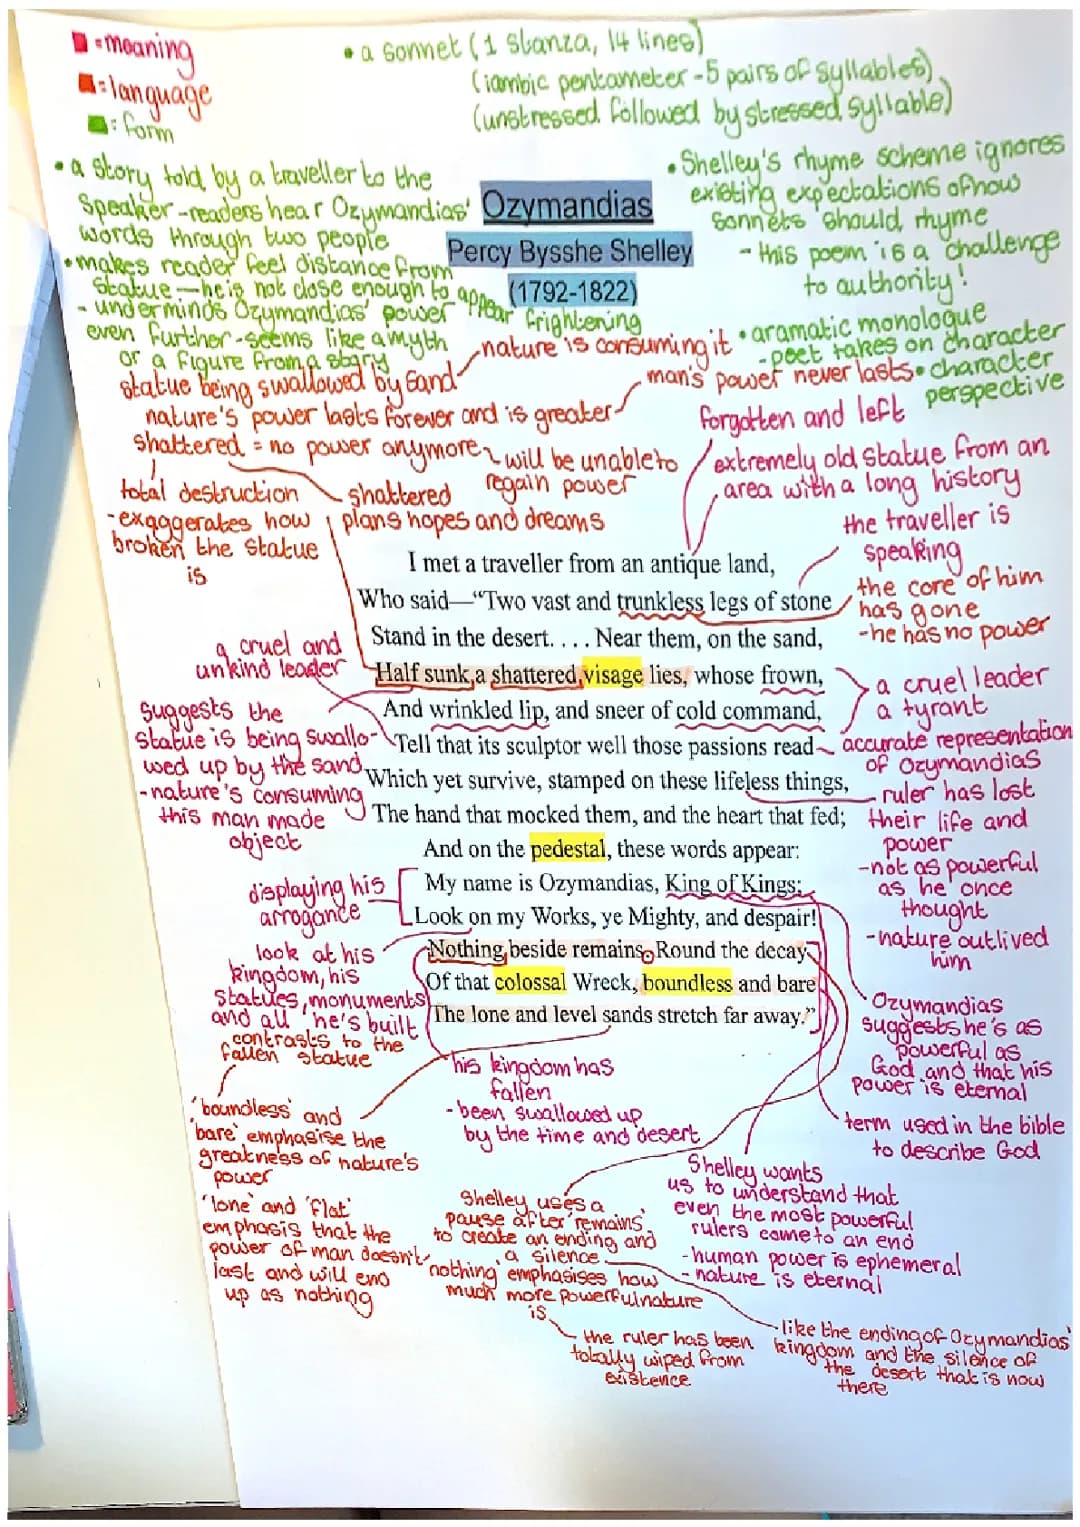 = meaning
= language
= form
• a sonnet (1 stanza, 14 lines)
(iambic pentameter - 5 pairs of syllables)
(unstressed followed by stressed syllable)
• a story told by a traveller to the
speaker - readers hear Ozymandias'
words through two people
• makes reader feel distance from
statue — he is not close enough to appear frightening
- underminds Ozymandias' power
even further - seems like a myth
or a figure from a story
Ozymandias
Percy Bysshe Shelley
(1792-1822)
• Shelley's rhyme scheme ignores
existing expectations of how
sonnets should rhyme
- this poem is a challenge
to authority!
• dramatic monologue
- poet takes on character
• character
perspective
statue being swallowed by sand
nature is consuming it
nature's power lasts forever and is greater
man's power never lasts
shattered = no power anymore
will be unable to
regain power
total destruction
- exaggerates how
broken the statue
is
shattered
plans hopes and dreams
forgotten and left
extremely old statue from an
area with a long history
the traveller is
speaking
the core of him
has gone
- he has no power
I met a traveller from an antique land,
Who said—“Two vast and trunkless legs of stone
Stand in the desert. . . . Near them, on the sand,
Half sunk, a shattered visage lies, whose frown,
And wrinkled lip, and sneer of cold command,
Tell that its sculptor well those passions read
Which yet survive, stamped on these lifeless things,
The hand that mocked them, and the heart that fed;
And on the pedestal, these words appear:
My name is Ozymandias, King of Kings;
Look on my Works, ye Mighty, and despair!
Nothing beside remains. Round the decay
Of that colossal Wreck, boundless and bare
The lone and level sands stretch far away.”
a cruel and
unkind leader
suggests the
statue is being swallo-
wed up by the sand
- nature's consuming
this man made
object
displaying his
arrogance
look at his
kingdom, his
statues, monuments
and all he's built
contrasts to the
fallen statue
a cruel leader
a tyrant
accurate representation
of Ozymandias
ruler has lost
their life and
power
- not as powerful
as he once
thought
- nature outlived
him
Ozymandias
suggests he's as
powerful as
God and that his
power is eternal
term used in the bible
to describe God
his kingdom has
fallen
- been swallowed up
by the time and desert
'boundless' and
'bare' emphasise the
greatness of nature's
power
'lone' and 'flat'
emphasis that the
power of man doesn't
last and will end
up as nothing
Shelley uses a
pause after 'remains'
to create an ending and
a silence
'nothing' emphasises how
much more powerful nature
is
the ruler has been
totally wiped from
existence
Shelley wants
us to understand that
even the most powerful
rulers come to an end
- human power is ephemeral
- nature is eternal
like the ending of Ozymandias'
kingdom and the silence of
the desert that is now
there